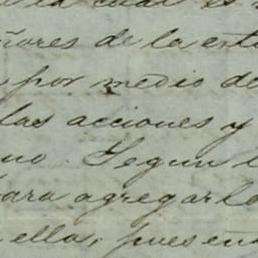 la cual es
ñores de la est
por medio de
las acciones y
no. Segun l
para agregarlo
ella, pues en